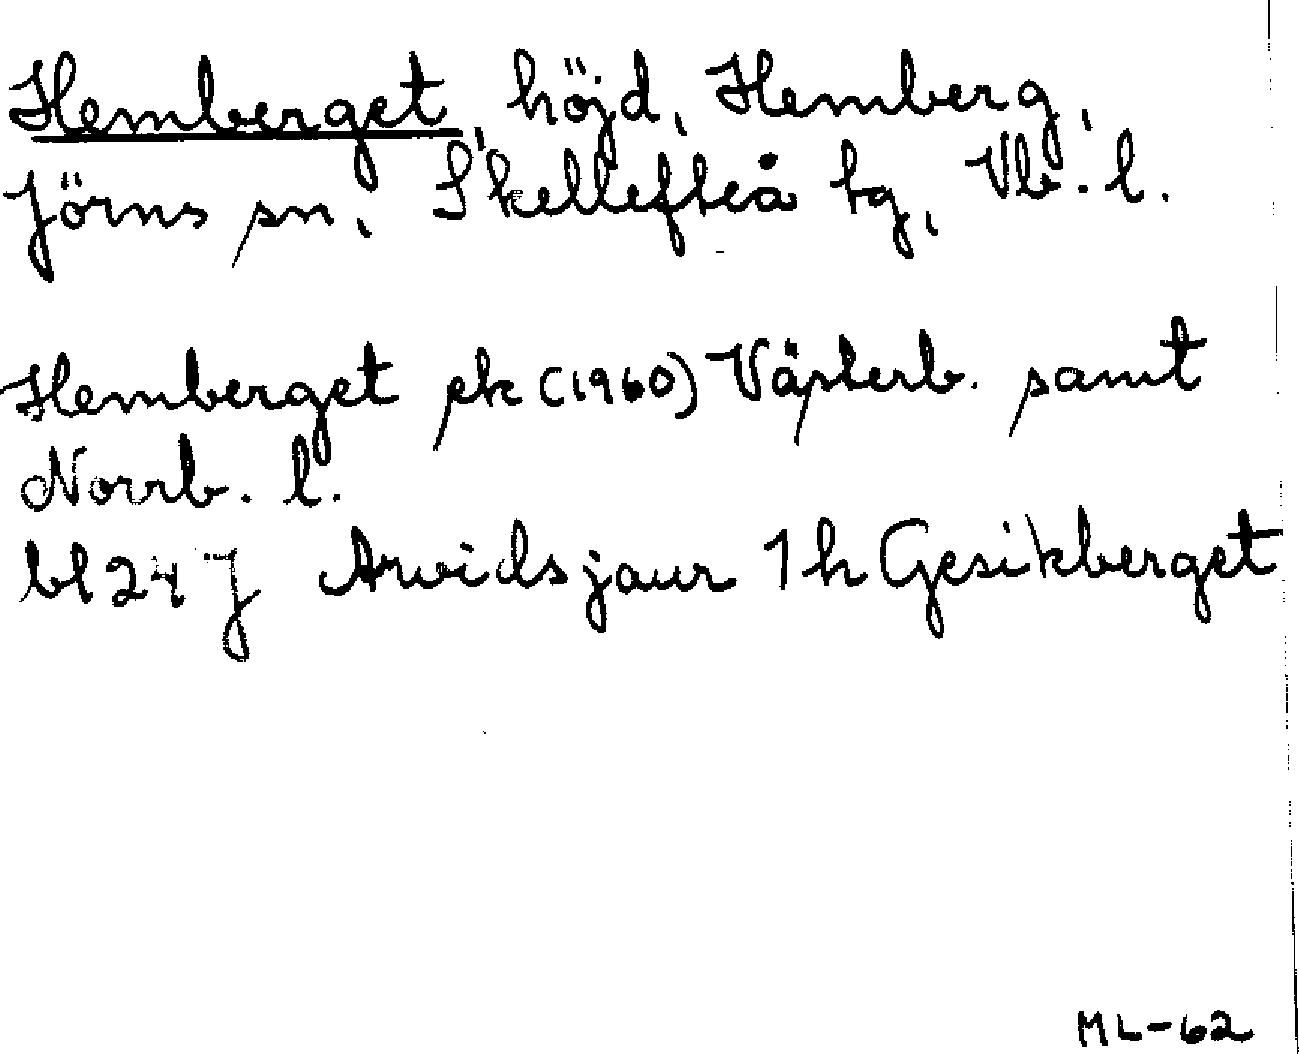 Hemberget, höjd, Hemberg,
Jörns sn, Skellefteå tg, Vb. l.
Hemberget ek (1960) Västerb. samt
Norrb. l.
bl 24 J Arvidsjaur 1 h Gesikberget
ML-62